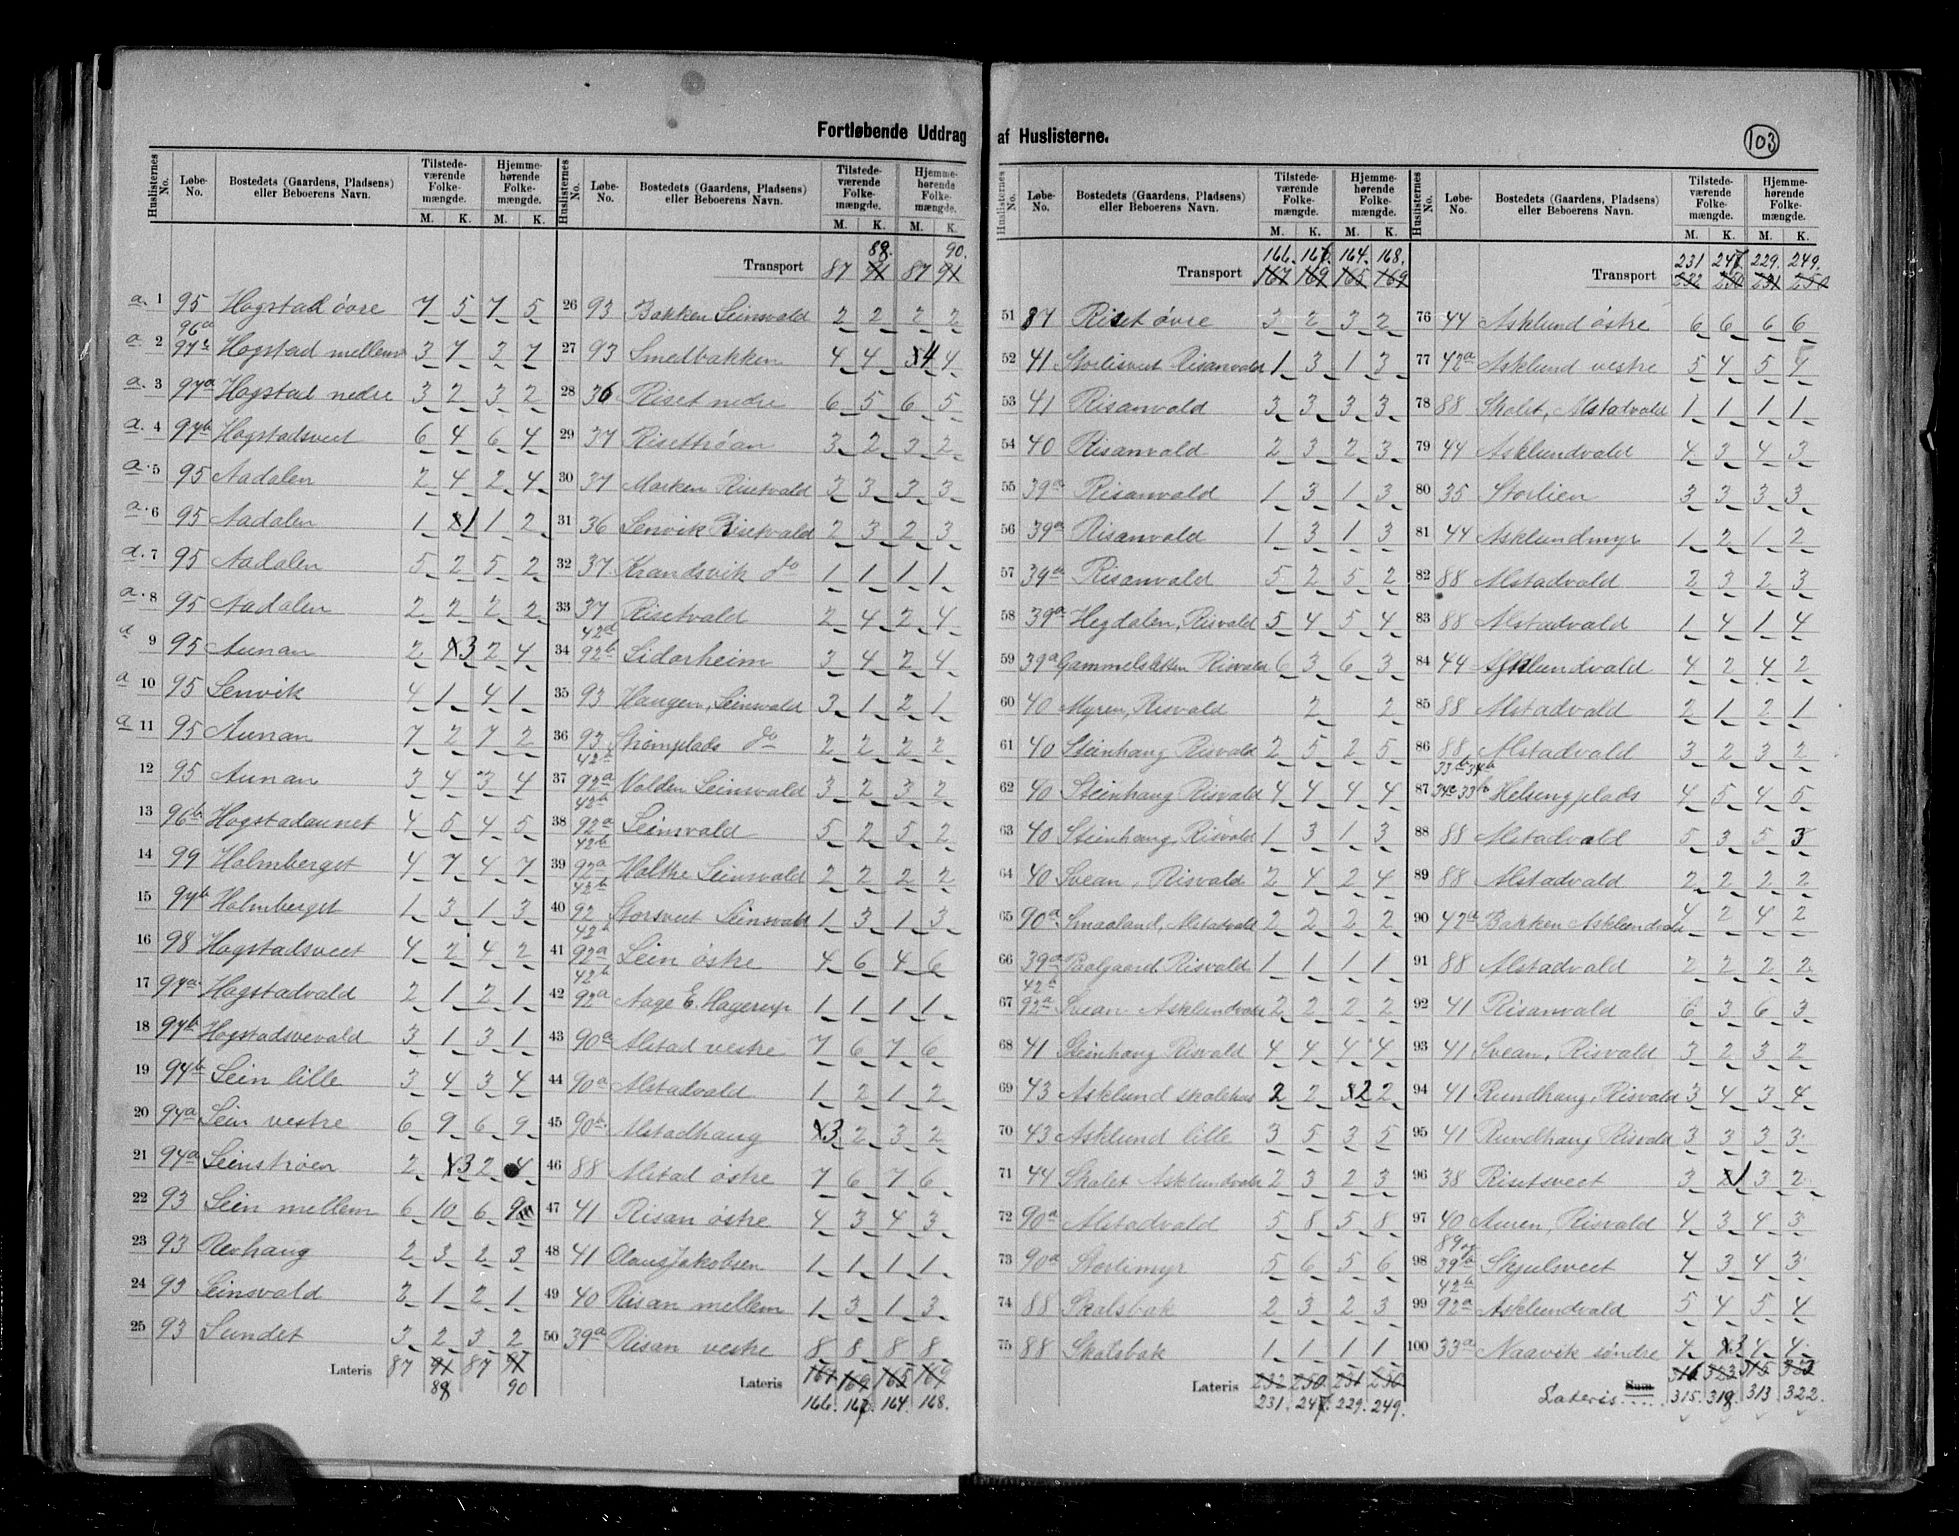 Fortløbende Uddrag af Huslisterne.
103
Huslisternes No. Løbe-No. Bostedets (Gaardens, Pladsens) eller Beboerens Navn. Tilstedeværende Folkemængde. M. K. Hjemmehørende Folkemængde. M. K.
a. 1 95 Hogstad övre 7 5 7 5
a 2 96a 97b Hogstad mellem 3 7 3 7
a. 3 97a Hogstad nedre 3 2 3 2
a. 4 97b Hogstadsveet 6 4 6 4
a. 5 95 Aadalen 2 4 2 4
a. 6 95 Aadalen 1 1 1 2
a. 7 95 Aadalen 5 2 5 2
a. 8 95 Aadalen 2 2 2 2
a 9 95 Aunan 2 3 2 4
a 10 95 Lenvik 4 1 4 1
a 11 95 Aunan 7 2 7 2
12 95 Aunan 3 4 3 4
13 96b Hogstadaunet 4 5 4 5
14 99 Holmberget 4 7 4 7
15 97b Holmberget 1 3 1 3
16 98 Hogstadsveet 4 2 4 2
17 97a Hogstadvald 2 1 2 1
18 97b Hogstadsvevald 3 1 3 1
19 94b Lein lille 3 4 3 4
20 94a Lein vestre 6 9 6 9
21 94a Leinstrøen 2 3 2 4
22 93 Lein mellem 6 10 6 9
23 93 Revhaug 2 3 2 3
24 93 Leinsvald 2 1 2 1
25 93 Sundet 3 2 3 2
Lateris 87 91 87 91
88 90
Huslisternes No. Løbe-No. Bostedets (Gaardens, Pladsens) eller Beboerens Navn. Tilstedeværende Folkemængde. M. K. Hjemmehørende Folkemængde. M. K.
88. 90.
Transport 87 91 87 91
26 93 Bakken Leinsvald 2 2 2 2
27 93 Smedbakken 4 4 4 4
28 36 Riset nedre 6 5 6 5
29 37 Risettrøan 3 2 3 2
30 37 Marken Risetvald 3 3 3 3
31 36 Lenvik Risetvald 2 3 2 3
32 37 Krandsvik do 1 1 1 1
33 37 Risetvald 2 4 2 4
34 42d 92b Lidarheim 3 4 2 4
35 93 Haugen, Leinsvald 3 1 2 1
36 93 Strömplads do 2 2 2 2
37 42b 92a Volden Leinsvald 3 2 3 2
38 42b 92a Leinsvald 5 2 5 2
39 42b 92a Holthe Leinsvald 2 2 2 2
40 42b 92 Storsveet Leinsvald 1 3 1 3
41 42b 92a Lein östre 4 6 4 6
42 42b 92a Aage E. Hagerup 1 1 1 1
43 90a Alstad vestre 7 6 7 6
44 90a Alstadvald 1 2 1 2
45 90b Alstadhaug 3 2 3 2
46 88 Alstad östre 7 6 7 6
47 41 Risan östre 4 3 4 3
48 41 Olaus Jakobsen 1 1 1 1
49 40 Risan mellem 1 3 1 3
50 39a Risan vestre 8 8 8 8
Lateris 167 169 165 169
166. 167. 164. 168.
Huslisternes No. Løbe-No. Bostedets (Gaardens, Pladsens) eller Beboerens Navn. Tilstedeværende Folkemængde. M. K. Hjemmehørende Folkemængde. M. K.
166. 167. 164. 168.
Transport 167 169 165 169
51 87 Riset övre 3 2 3 2
52 41 Storlisveet Risanvald 1 3 1 3
53 41 Risanvald 3 3 3 3
54 40 Risanvald 2 3 2 3
55 39a Risanvald 1 3 1 3
56 39a Risanvald 1 3 1 3
57 39a Risanvald 5 2 5 2
58 39a Hegdalen, Risvald 5 4 5 4
59 39a Gammelsletten Risvald 6 3 6 3
60 40 Myren, Risvald 2 2
61 40 Steinhaug Risvald 2 5 2 5
62 40 Steinhaug Risvald 4 4 4 4
63 40 Steinhaug, Risvald 1 3 1 3
64 40 Svean, Risvald 2 4 2 4
65 90a Smaaland, Alstadvald 2 2 2 2
66 39a Balgaard Risvald 1 1 1 1
67 42a 92a Svean Asklundvald 2 2 2 2
68 41 Steinhaug Risvald 4 4 4 4
69 43 Asklund skolehus 2 2 2 2
70 43 Asklund lille 3 5 3 5
71 44 Skolet Asklundvald 2 3 2 3
72 90a Alstadvald 5 8 5 8
73 90a Storlimyr 5 6 5 6
74 88 Skalsbak 2 3 2 3
75 88 Skalsbak 1 1 1 1
Lateris 232 250 231 250
231. 247. 229. 249.
Huslisternes No. Løbe-No. Bostedets (Gaardens, Pladsens) eller Beboerens Navn. Tilstedeværende Folkemængde. M. K. Hjemmehørende Folkemængde. M. K.
231 247. 229. 249.
Transport 232 250 231 250
76 44 Asklund östre 6 6 6 6
77 42a Asklund vestre 5 4 5 4
78 88 Skolet, Alstadvald 1 1 1 1
79 44 Asklundvald 4 3 4 3
80 35 Storlien 3 3 3 3
81 44 Asklundmyr 1 2 1 2
82 88 Alstadvald 2 3 2 3
83 88 Alstadvald 1 4 1 4
84 44 Asklundvald 4 2 4 2
85 88 Alstadvald 2 1 2 1
86 88 Alstadvald 3 2 3 2
87 33b 34b 34a 33b Helsingplads 4 5 4 5
88 88 Alstadvald 5 3 5 3
89 88 Alstadvald 2 2 2 2
90 42b Bakken Asklundvald 4 2 4 2
91 88 Alstadvald 2 2 2 2
92 41 Risanvald 6 3 6 3
93 41 Svean, Risvald 3 2 3 2
94 41 Rundhaug, Risvald 3 4 3 4
95 41 Rundhaug Risvald 3 3 3 3
96 38 Risetsveet 3 1 3 2
97 40 Auren, Risvald 4 3 4 3
98 89 39a Skjulsveet 4 3 4 3
99 42b 92a Asklundvald 5 4 5 4
100 33a Naavik söndre 4 3 4 4
Sum 316 323 315 353
Lateris 315. 318. 313 322.